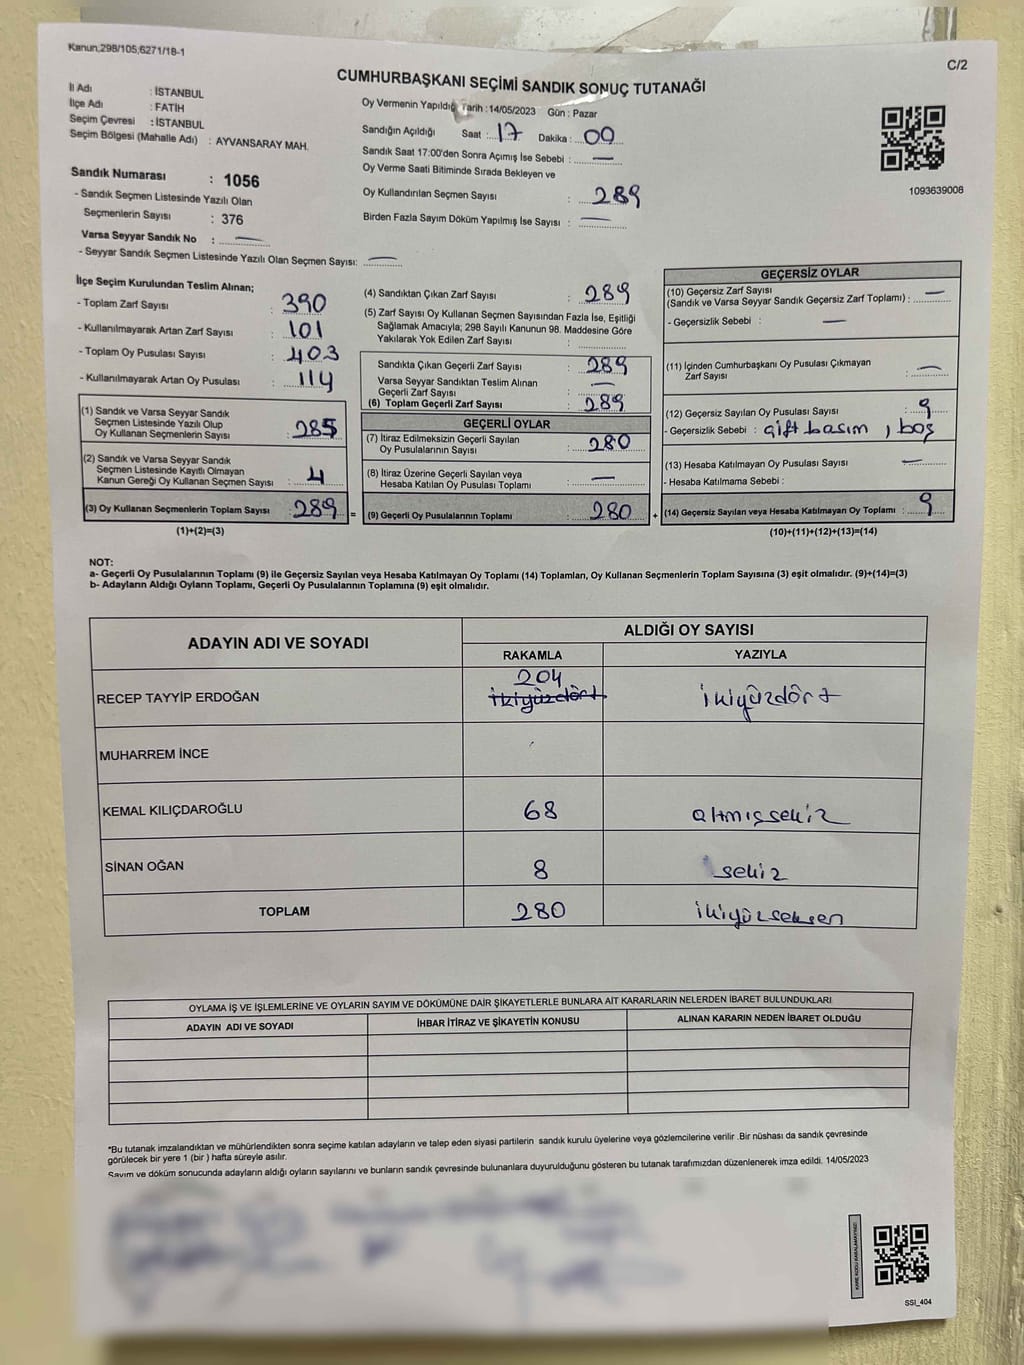 Kanun;298/105;6271/18-1
C/2
CUMHURBAŞKANI SEÇİMİ SANDIK SONUÇ TUTANAĞI
İl Adı : İSTANBUL
İlçe Adı : FATİH
Seçim Çevresi : İSTANBUL
Seçim Bölgesi (Mahalle Adı) : AYVANSARAY MAH.
Sandık Numarası : 1056
- Sandık Seçmen Listesinde Yazılı Olan
Seçmenlerin Sayısı : 376
Varsa Seyyar Sandık No : —
- Seyyar Sandık Seçmen Listesinde Yazılı Olan Seçmen Sayısı: —
Oy Vermenin Yapıldığı Tarih :14/05/2023 Gün : Pazar
Sandığın Açıldığı Saat : 17 Dakika : 00
Sandık Saat 17:00'den Sonra Açımış İse Sebebi : —
Oy Verme Saati Bitiminde Sırada Bekleyen ve
Oy Kullandırılan Seçmen Sayısı : 289
Birden Fazla Sayım Döküm Yapılmış İse Sayısı : —
1093639008
İlçe Seçim Kurulundan Teslim Alınan;
- Toplam Zarf Sayısı : 390
- Kullanılmayarak Artan Zarf Sayısı : 101
- Toplam Oy Pusulası Sayısı : 403
- Kullanılmayarak Artan Oy Pusulası : 114
(1) Sandık ve Varsa Seyyar Sandık
Seçmen Listesinde Yazılı Olup
Oy Kullanan Seçmenlerin Sayısı : 285
(2) Sandık ve Varsa Seyyar Sandık
Seçmen Listesinde Kayıtlı Olmayan
Kanun Gereği Oy Kullanan Seçmen Sayısı : 4
(3) Oy Kullanan Seçmenlerin Toplam Sayısı : 289 =
(1)+(2)=(3)
(4) Sandıktan Çıkan Zarf Sayısı : 289
(5) Zarf Sayısı Oy Kullanan Seçmen Sayısından Fazla İse, Eşitliği
Sağlamak Amacıyla; 298 Sayılı Kanunun 98. Maddesine Göre
Yakılarak Yok Edilen Zarf Sayısı :
Sandıkta Çıkan Geçerli Zarf Sayısı : 289
Varsa Seyyar Sandıktan Teslim Alınan
Geçerli Zarf Sayısı : —
(6) Toplam Geçerli Zarf Sayısı : 289
GEÇERLİ OYLAR
(7) İtiraz Edilmeksizin Geçerli Sayılan
Oy Pusulalarının Sayısı : 280
(8) İtiraz Üzerine Geçerli Sayılan veya
Hesaba Katılan Oy Pusulası Toplamı : —
(9) Geçerli Oy Pusulalarının Toplamı : 280 +
GEÇERSİZ OYLAR
(10) Geçersiz Zarf Sayısı
(Sandık ve Varsa Seyyar Sandık Geçersiz Zarf Toplamı) : —
- Geçersizlik Sebebi : —
(11) İçinden Cumhurbaşkanı Oy Pusulası Çıkmayan
Zarf Sayısı : —
(12) Geçersiz Sayılan Oy Pusulası Sayısı : 9
- Geçersizlik Sebebi : çift basım , boş
(13) Hesaba Katılmayan Oy Pusulası Sayısı : —
- Hesaba Katılmama Sebebi :
(14) Geçersiz Sayılan veya Hesaba Katılmayan Oy Toplamı : 9
(10)+(11)+(12)+(13)=(14)
NOT:
a- Geçerli Oy Pusulalarının Toplamı (9) ile Geçersiz Sayılan veya Hesaba Katılmayan Oy Toplamı (14) Toplamları, Oy Kullanan Seçmenlerin Toplam Sayısına (3) eşit olmalıdır. (9)+(14)=(3)
b- Adayların Aldığı Oyların Toplamı, Geçerli Oy Pusulalarının Toplamına (9) eşit olmalıdır.
ADAYIN ADI VE SOYADI
ALDIĞI OY SAYISI
RAKAMLA YAZIYLA
204
RECEP TAYYİP ERDOĞAN ikiyüzdört ikiyüzdört
MUHARREM İNCE
KEMAL KILIÇDAROĞLU 68 altmışsekiz
SİNAN OĞAN 8 sekiz
TOPLAM 280 ikiyüzseksen
OYLAMA İŞ VE İŞLEMLERİNE VE OYLARIN SAYIM VE DÖKÜMÜNE DAİR ŞİKAYETLERLE BUNLARA AİT KARARLARIN NELERDEN İBARET BULUNDUKLARI
ADAYIN ADI VE SOYADI İHBAR İTİRAZ VE ŞİKAYETİN KONUSU ALINAN KARARIN NEDEN İBARET OLDUĞU
*Bu tutanak imzalandıktan ve mühürlendikten sonra seçime katılan adayların ve talep eden siyasi partilerin sandık kurulu üyelerine veya gözlemcilerine verilir .Bir nüshası da sandık çevresinde
görülecek bir yere 1 (bir ) hafta süreyle asılır.
Sayım ve döküm sonucunda adayların aldığı oyların sayılarını ve bunların sandık çevresinde bulunanlara duyurulduğunu gösteren bu tutanak tarafımızdan düzenlenerek imza edildi. 14/05/2023
SSI_404